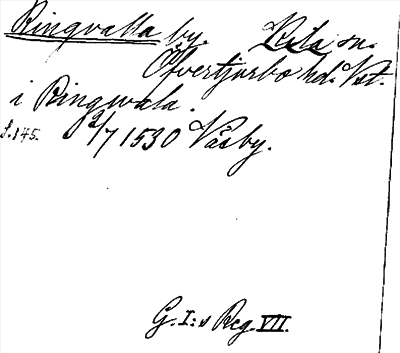 Ringvalla by. Kila sn.
Öfvertjurbo hd. Vst.
i Ringwala.
s.145. 2/7 1530 Väsby.
G. I:s Reg. VII.